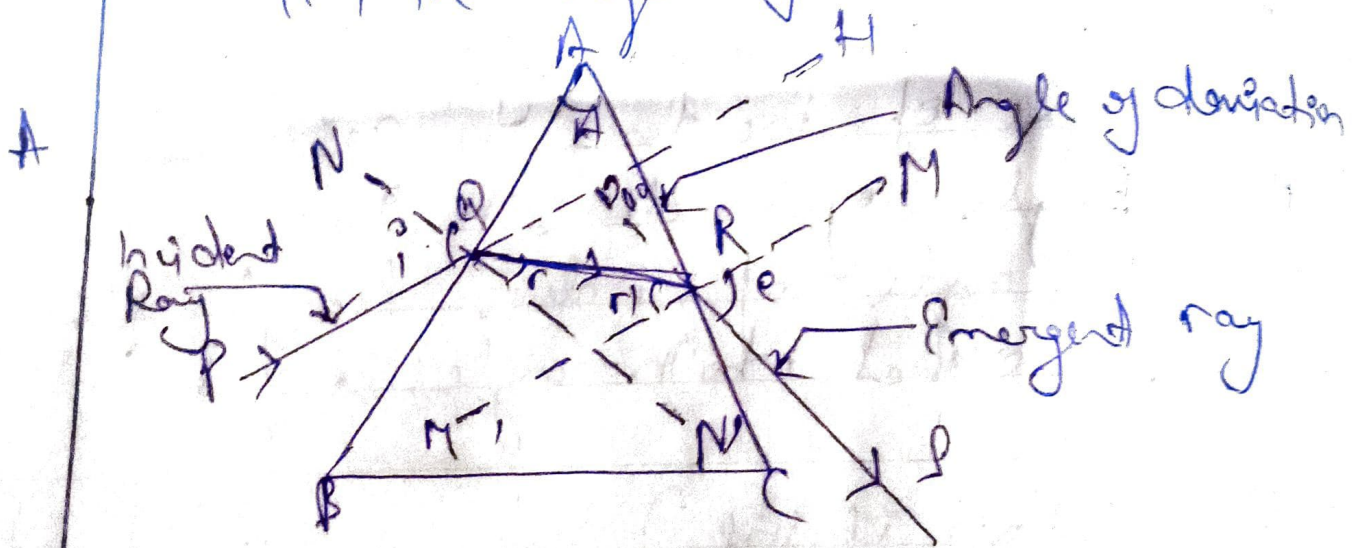 A
H
A
Angle of deviation
A
N
M
Q
R
i
Incident
Ray
r
r1
e
P
Emergent ray
M'
N'
S
B
C